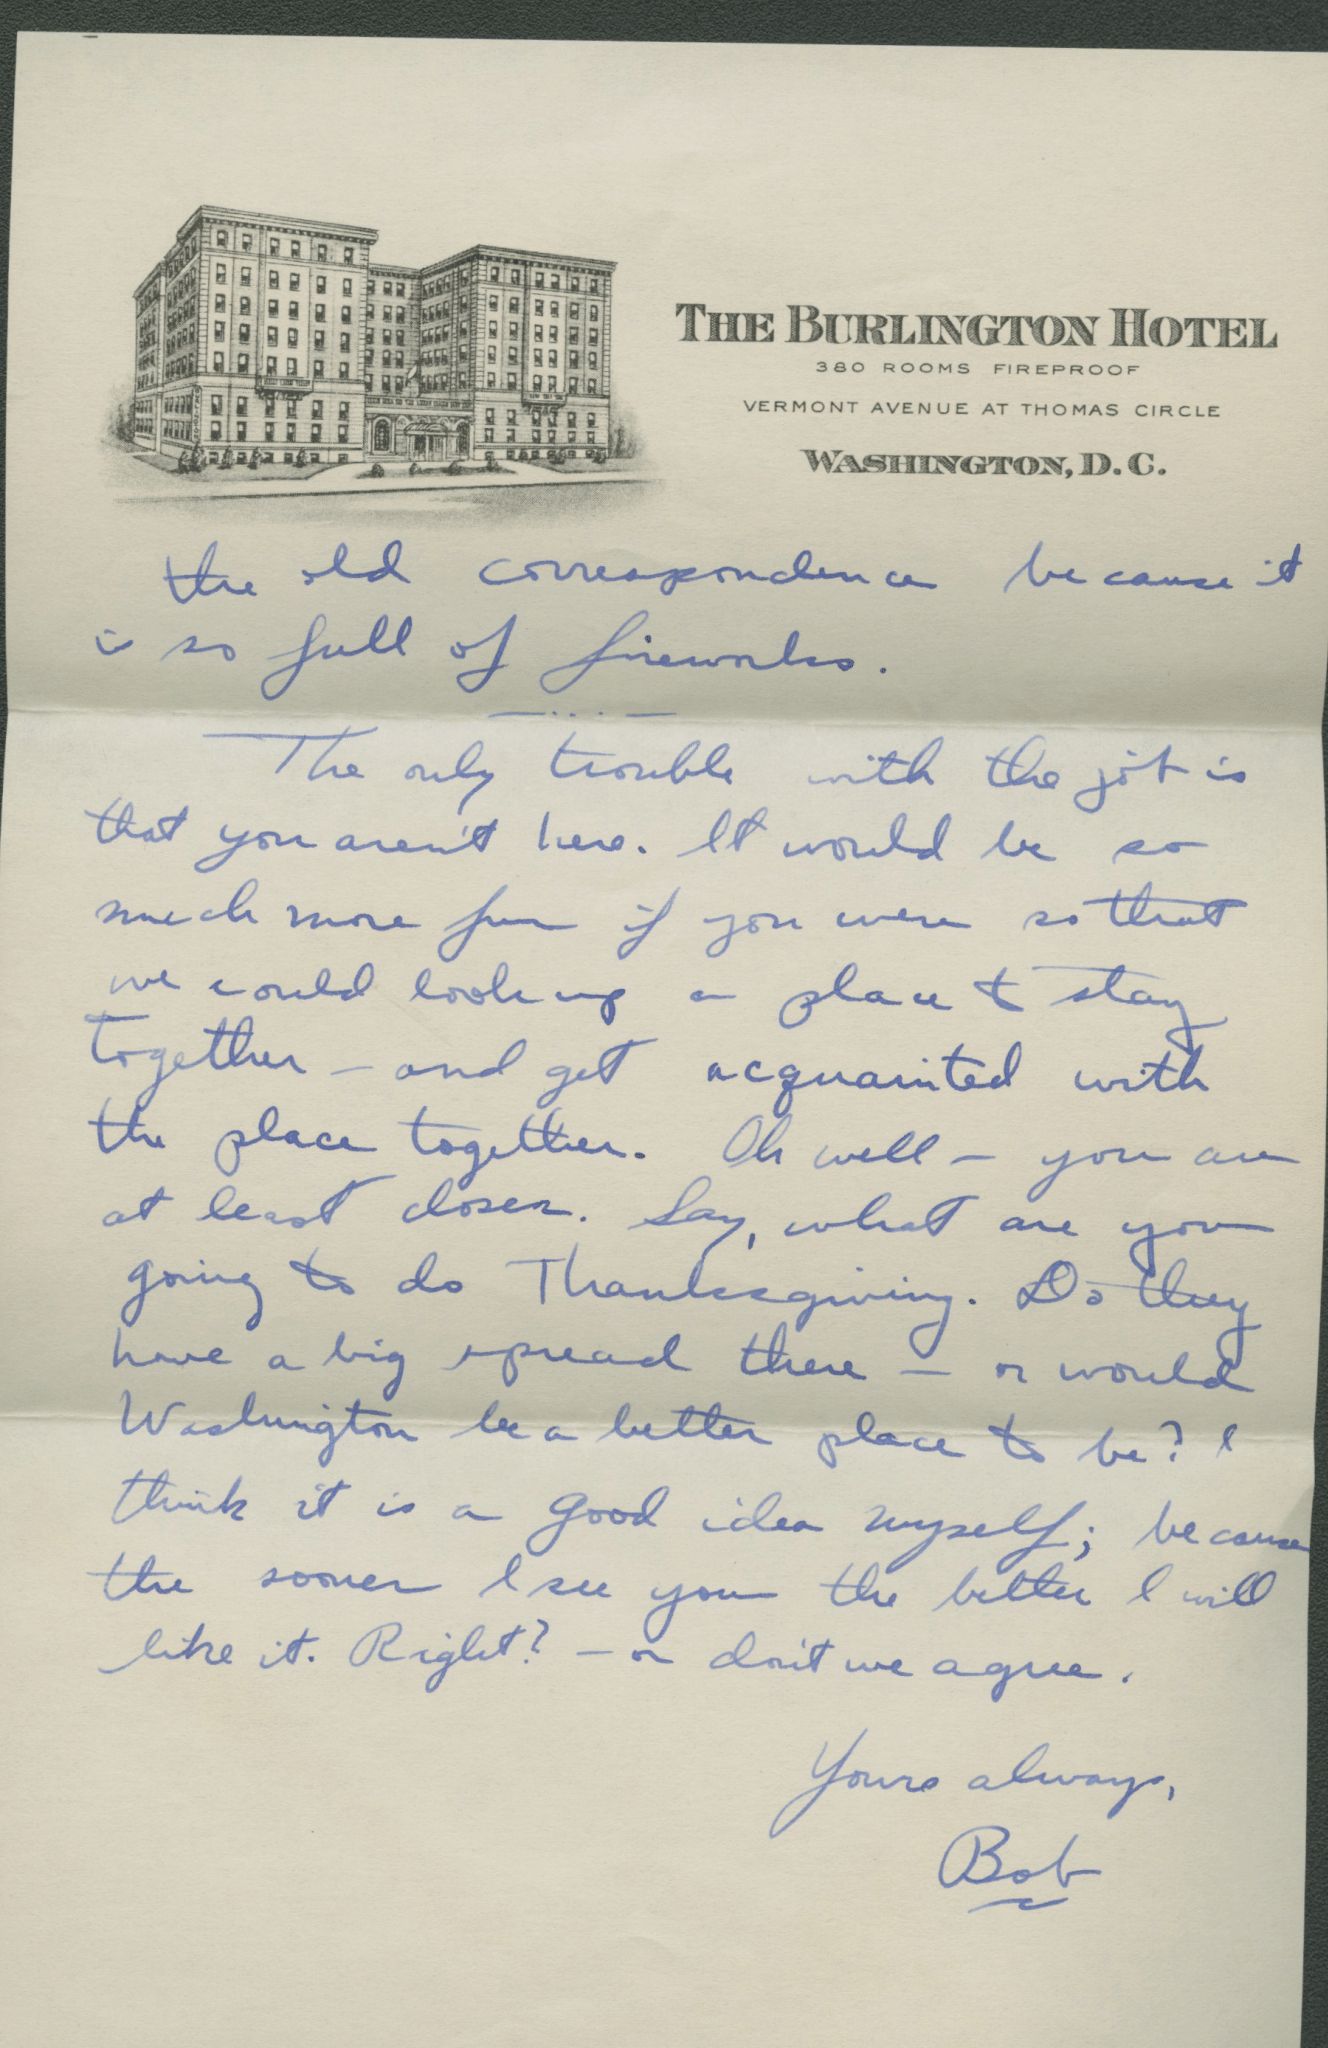 THE BURLINGTON HOTEL
380 ROOMS FIREPROOF
VERMONT AVENUE AT THOMAS CIRCLE
WASHINGTON, D.C.
the old correspondence because it
is so full of fireworks.
The only trouble with the job is
that you aren't here. It would be so
much more fun if you were so that
we could look up a place to stay
together — and get acquainted with
the place together. Oh well — you are
at least closer. Say, what are you
going to do Thanksgiving. Do they
have a big spread there — or would
Washington be a better place to be? I
think it is a good idea myself; because
the sooner I see you the better I will
like it. Right? — or don't we agree.
Yours always,
Bob